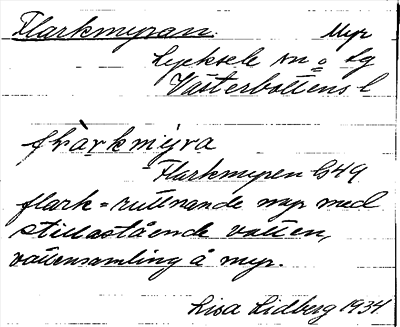 Flarkmyran. Myr
Lycksele sn o. lg
Västerbottens l
flàrkmýra
Flarkmyren G49
flark = ruttnande myr med
stillastående vatten,
vattensamling å myr.
Lisa Lidberg 1934.